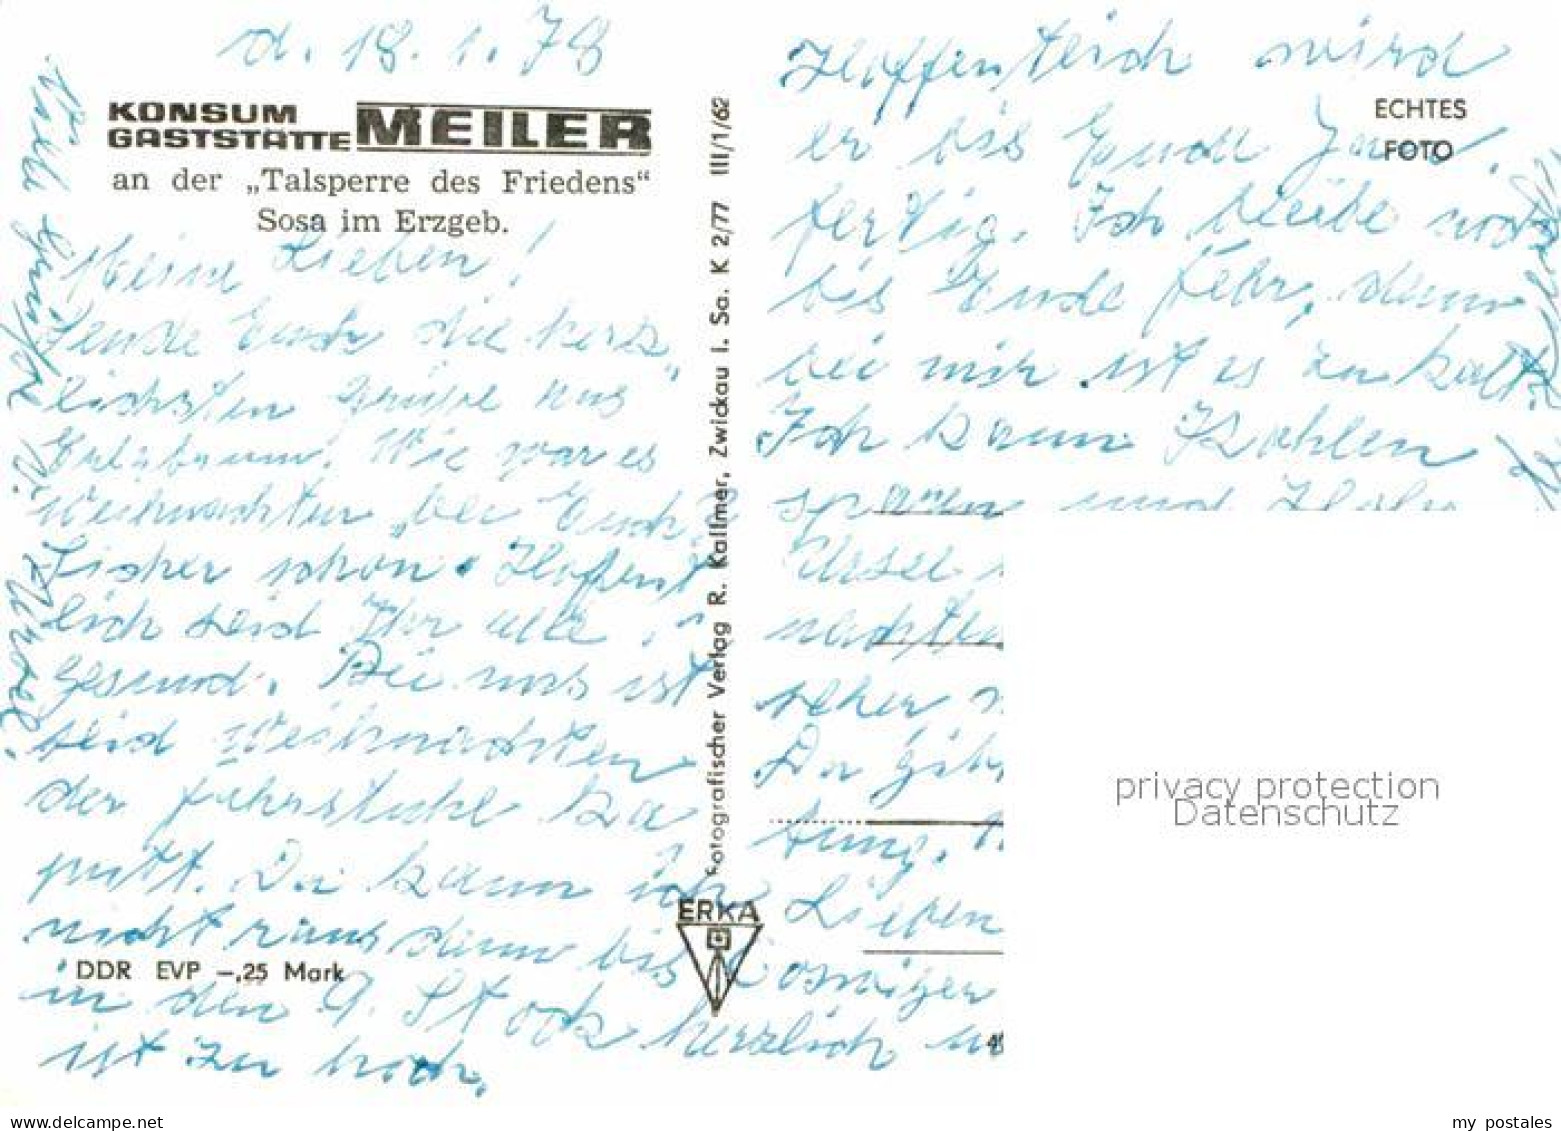 d. 18. 1. 78
KONSUM
GASTSTÄTTE MEILER
an der „Talsperre des Friedens“
Sosa im Erzgeb.
Meine Lieben!
Sende Euch die herz„
lichsten Grüße aus
Wie war es
Weihnachten bei Euch?
Sicher schon. Hoffent
lich seid Ihr alle
Gesund. Bei uns ist
seid Weihnachten
der Fahrstuhl ka
putt. Da kann ich
nicht raus denn bis
in den 9. Stock
ist zu hoch.
DDR EVP –,25 Mark
Fotografischer Verlag R. Kallmer, Zwickau i. Sa. K 2/77 III/1/62
ERKA
ECHTES
FOTO
Hoffentlich wird
er bis Ende
fertig. Ich bleibe noch
bis Ende Febr, denn
bei mir ist es zu kalt.
Ich kann Kohlen
sparen und
Ursel
nachsten
seher
Da
Lieben
herzlich
49
privacy protection
Datenschutz
my postales